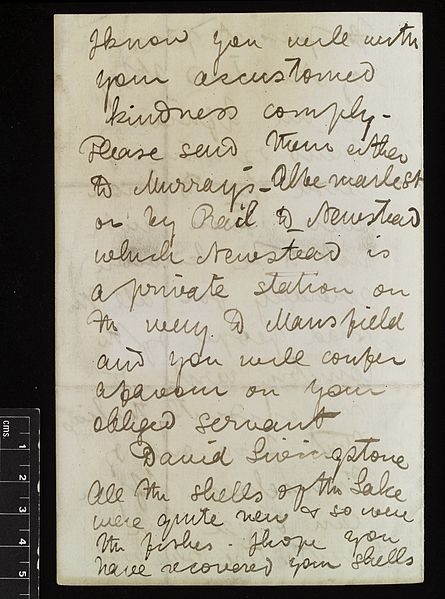 I know you will with
your accustomed
kindness comply -
Please send them either
to Murray's - Albemarlest
or by Rail to Newstead
which Newstead is
a private station on
the way to Mansfield
and you will confer
a favour on your
obliged servant
David Livingstone
All the shells of the Lake
were quite new & so were
the fishes - I hope you
have recovered your shells
cms
1
2
3
4
5